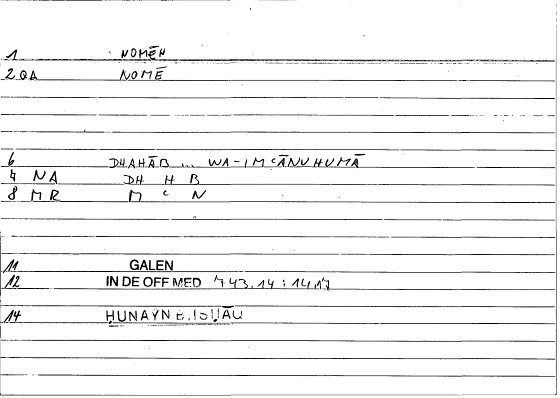 1 NOMĒN
2 QA NOMĒ
6 DHAHĀB ... WA-IMᶜĀNUHUMĀ
4 NA DH H B
8 MR M ᶜ N
11 GALEN
12 IN DE OFF MED 743.14 : 14.17
14 ḤUNAYN B. ISḤĀQ